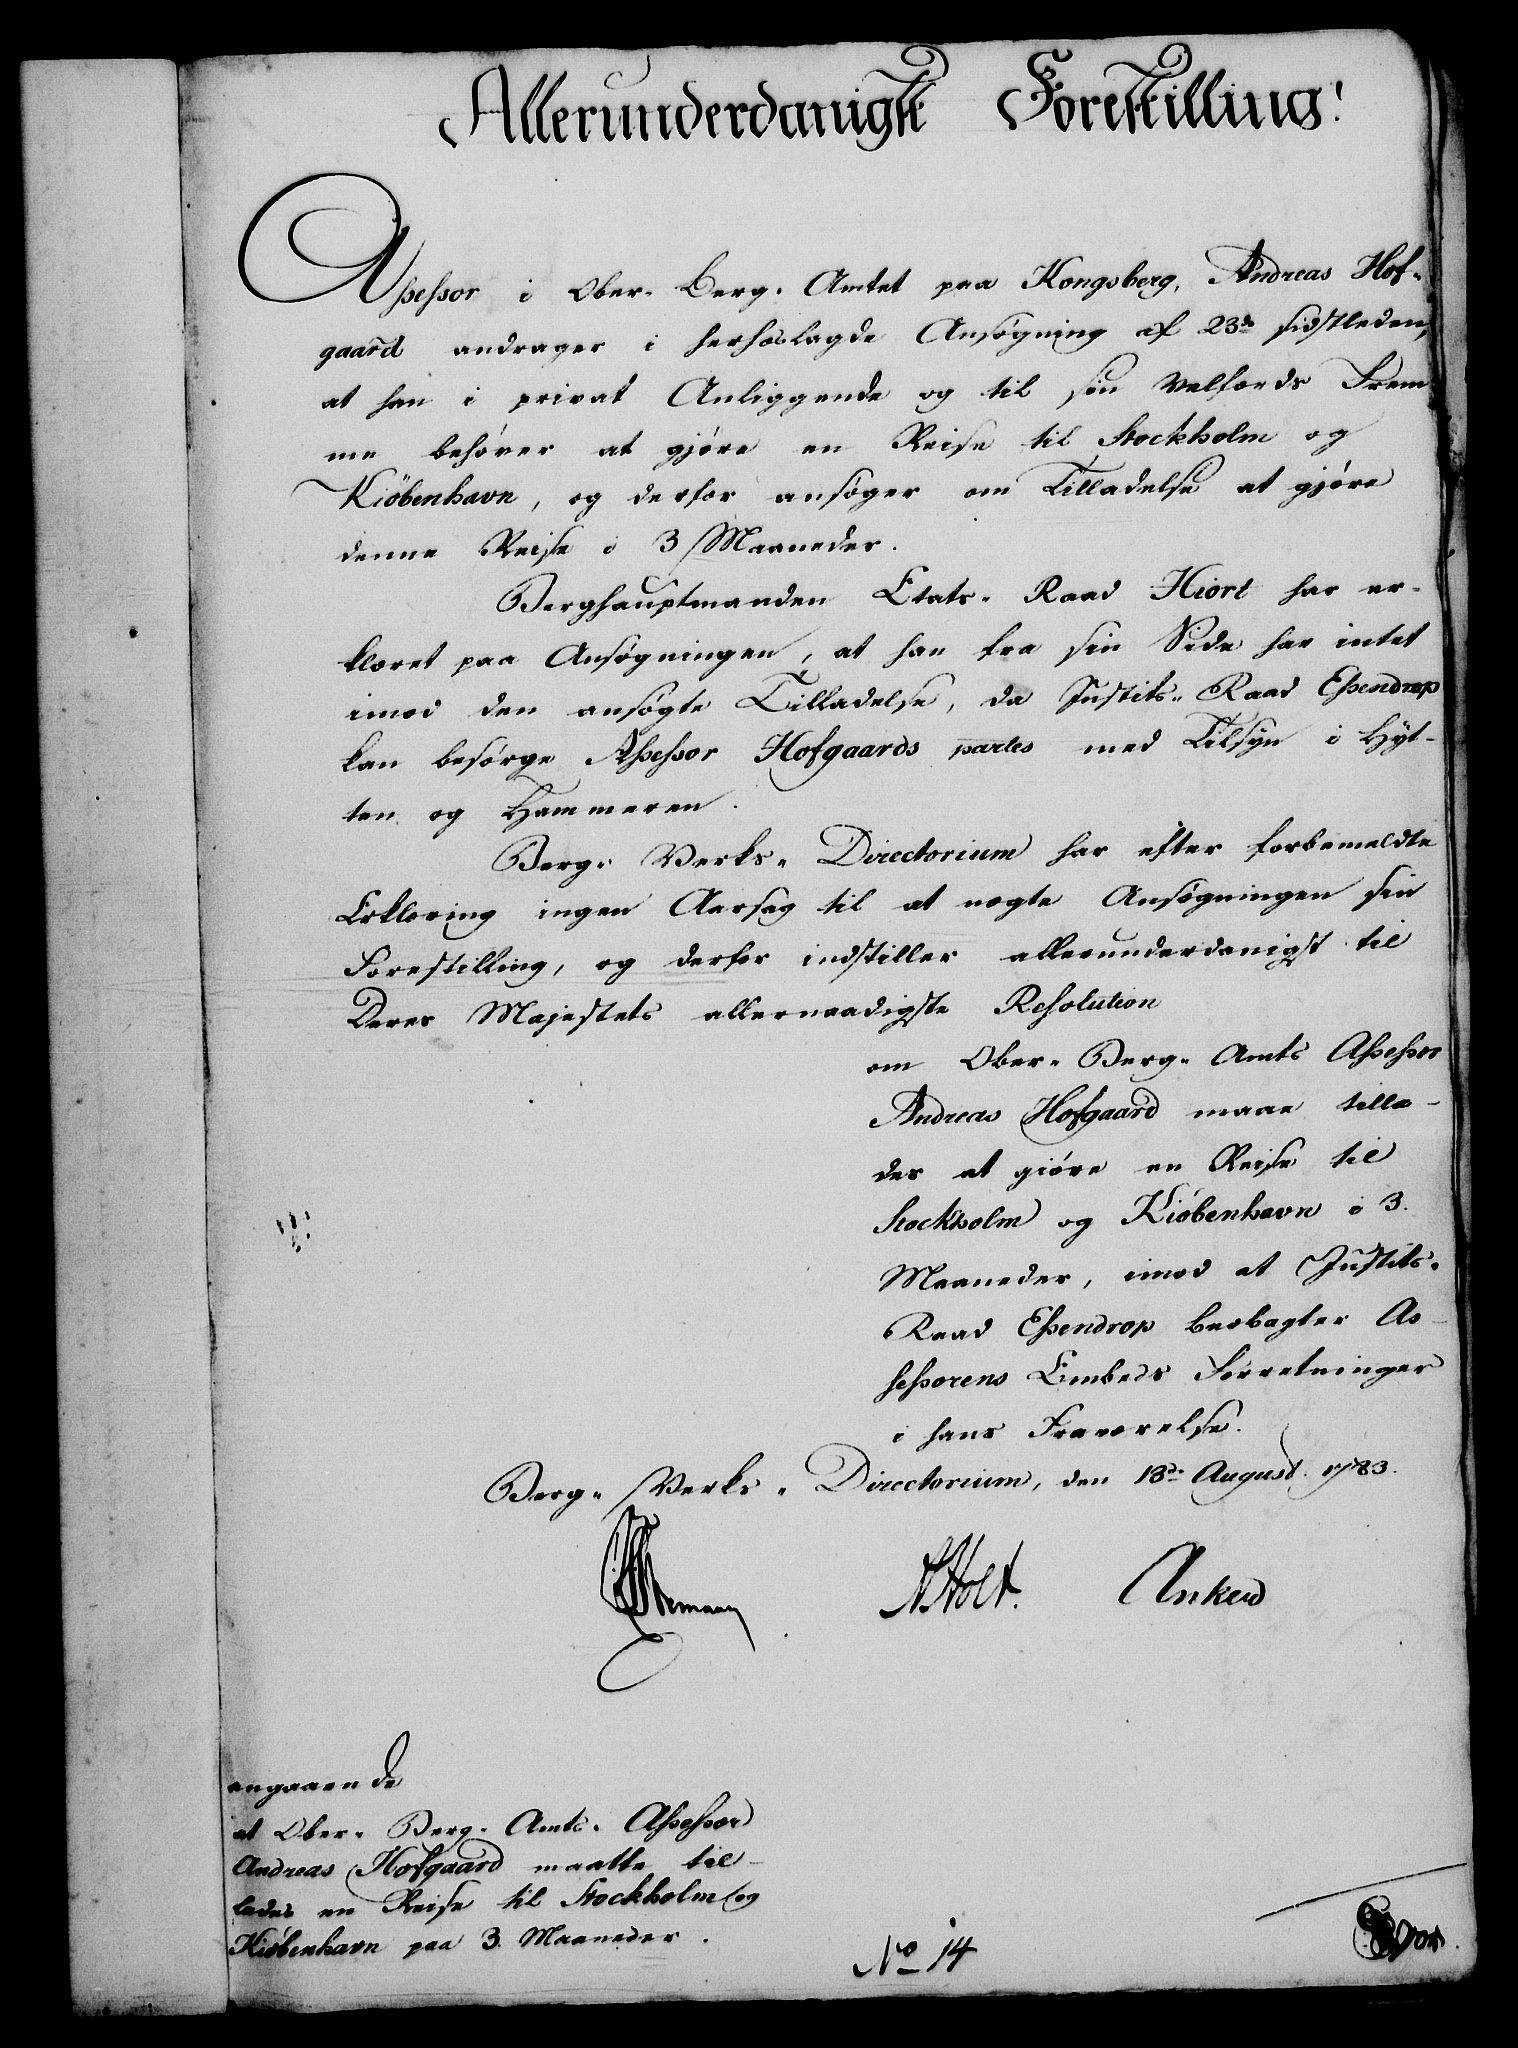 Allerunderdanigst Forestilling!
Assessor i Ober-Berg-Amtet paa Kongsberg, Andreas Hof-
gaard andrager i herhoslagde Ansøgning af 23de sidstleden,
at han i privat Anliggende og til sin Velfærds Frem-
me behøver at gjøre en Reise til Stockholm og
Kiöbenhavn, og derfor ansøger om Tilladelse at gjøre
denne Reise i 3 Maaneder.
Berghauptmanden Etats-Raad Hiort har er-
klæret paa Ansøgningen, at han fra sin Side har intet
imod den ansøgte Tilladelse, da Justits-Raad Essendrop
kan besørge Assessor Hofgaards partes med Tilsyn i Hyt-
ten og Hammeren.
Berg-Verks-Directorium har efter forbemeldte
Erklæring ingen Aarsag til at nægte Ansøgningen sin
Forestilling, og derfor indstiller allerunderdanigst til
Deres Majestets allernaadigste Resolution
om Ober-Berg-Amts Assessor
Andreas Hofgaard maae tilla-
des at giøre en Reise til
Stockholm og Kiöbenhavn i 3.
Maaneder, imod at Justits-
Raad Essendrop beobagter As-
sessorens Embeds Forretninger
i hans Fraværelse.
Berg-Verks-Directorium, den 18de August 1783.
Holt. Anker
angaaende
at Ober-Berg-Amts-Assessor
Andreas Hofgaard maatte til-
lades en Reise til Stockholm og
Kiöbenhavn paa 3. Maaneder.
No 14